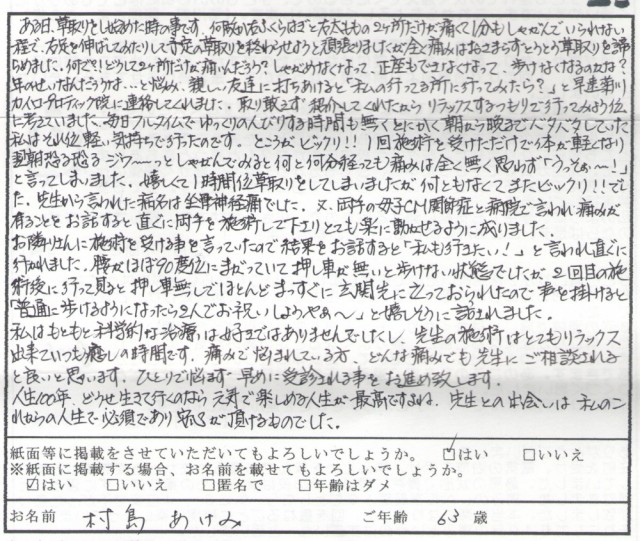 ある日、草取りをし始めた時の事です。何故か右ふくらはぎと右太ももの2ヶ所だけが痛くて1分もしゃがんでいられない
程で、右足を伸ばしてみたりして予定の草取りを終わらせようと頑張りましたが全く痛みはおさまらずとうとう草取りを諦
らめました。何で?!どうして2ヶ所だけが痛いんだろう?しゃがめなくなって、正座もできなくなって、歩けなくなるのかな?
年のせいなんだろうか…と悩み、親しい友達に打ちあけると「私の行ってる所に行ってみたら?」と早速菊川
カイロプロティック院に連絡してくれました。取り敢えず紹介してくれたからリラックスするつもりで行ってみよう位
に考えていました。毎日フルタイムでゆっくりのんびりする時間も無くとにかく朝から晩までバタバタしていた
私はそれ位軽い気持ちで行ったのです。ところがビックリ!!1回施術を受けただけで体が軽くなり
翌朝恐る恐るジワ〜〜っとしゃがんでみると何と何分経っても痛みは全く無く思わず「うっそぉ〜!」
と言ってしまいました。嬉しくて1時間位草取りをしてしまいましたが何ともなくてまたビックリ!!でし
た。先生から言われた病名は坐骨神経痛でした。又、両手の母子CM関節症と病院で言われ痛みが
有ることをお話すると直ぐに両手を施術して下さりとても楽に動かせるように成りました。
お隣りさんに施術を受ける事を言っていたので結果をお話すると「私も行きたい!」と言われ直ぐに
行かれました。腰がほぼ90度位にまがっていて押し車が無いと歩けない状態でしたが、2回目の施
術後に行って見ると押し車無しでほとんどまっすぐに玄関先に立っておられたので事を掛けると
「普通に歩けるようになったら2人でお祝いしようやぁ〜」と嬉しそうに話されました。
私はもともと科学的な治療は好きではありませんでしたし、先生の施術はとてもリラックス
出来ていつも癒しの時間です。痛みで悩まれている方、どんな痛みでも先生にご相談される
と良いと思います。ひとりで悩まず早めに受診される事をお進め致します。
人生100年、どうせ生きて行くのなら元気で楽しめる人生が最高ですよね。先生との出会いは私のこ
れからの人生で必須であり安心が頂けるものでした。
紙面等に掲載をさせていただいてもよろしいでしょうか。 ☑はい □いいえ
※紙面に掲載する場合、お名前を載せてもよろしいでしょうか。
☑はい □いいえ □匿名で □年齢はダメ
お名前 村島 あけみ ご年齢 63 歳